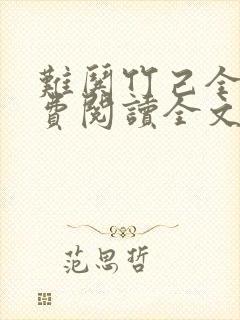 難聞竹己全
費閱讀全文
范思哲